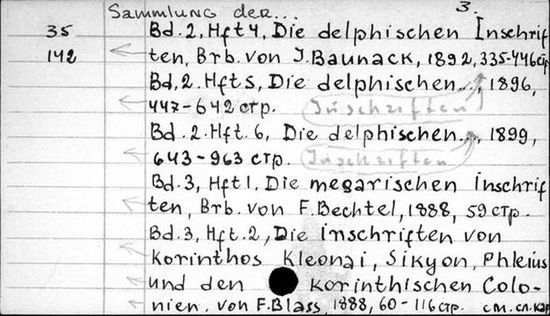 Sammlung der... 3.
35 Bd. 2, Hft 4, Die delphischen Inschrif
142 ten, Brb. von J. Baunack, 1892, 335-446стр
Bd. 2. Hft 5, Die delphischen..., 1896,
447-642 стр. Inschriften
Bd. 2. Hft. 6, Die delphischen..., 1899,
643-963 стр. Inschriften
Bd. 3, Hft 1, Die megarischen Inschrif
ten, Brb. von F. Bechtel, 1888, 59 стр.
Bd. 3, Hft. 2, Die Inschriften von
Korinthos Kleonai, Sikyon, Phleius
und den korinthischen Colo-
nien. von F. Blass, 1888, 60-116 стр. см. сл. кар